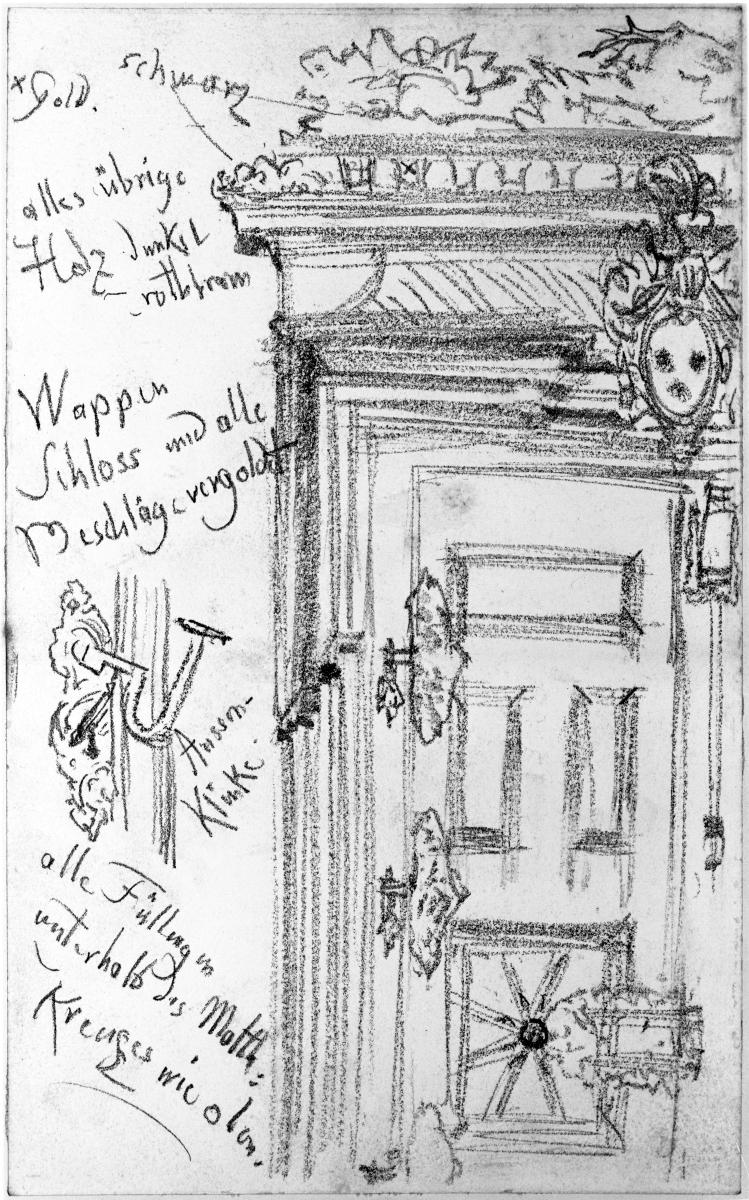 × Gold.
schwarz
alles übrige
Holz dunkel
rothbraun
Wappen
Schloss und alle
Beschläge vergoldet
Aussen-
Klinke.
alle Füllungen
unterhalb des Malth:
Kreuzes wie oben.